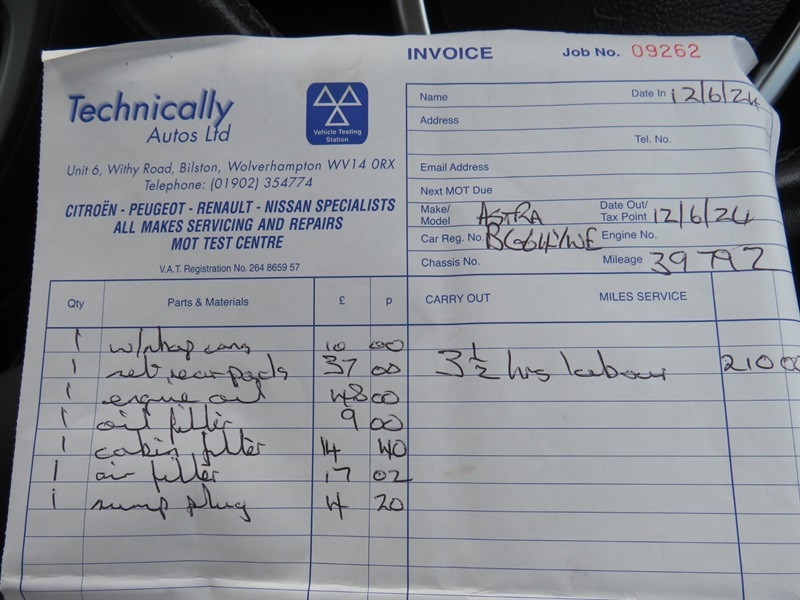 INVOICE Job No. 09262
Technically
Autos Ltd
Vehicle Testing
Station
Unit 6, Withy Road, Bilston, Wolverhampton WV14 0RX
Telephone: (01902) 354774
CITROËN - PEUGEOT - RENAULT - NISSAN SPECIALISTS
ALL MAKES SERVICING AND REPAIRS
MOT TEST CENTRE
V.A.T. Registration No. 264 8659 57
Name Date In 12/6/24
Address
Tel. No.
Email Address
Next MOT Due
Make/
Model ASTRA Date Out/
Tax Point 12/6/24
Car Reg. No. BG64YWE Engine No.
Chassis No. Mileage 39792
Qty Parts & Materials £ p CARRY OUT MILES SERVICE
1 w/shop cons 10 00
1 set rear pads 37 00 3 1/2 hrs labour 210 00
1 engine oil 48 00
1 oil filter 9 00
1 cabin filter 14 40
1 air filter 17 02
1 sump plug 4 20